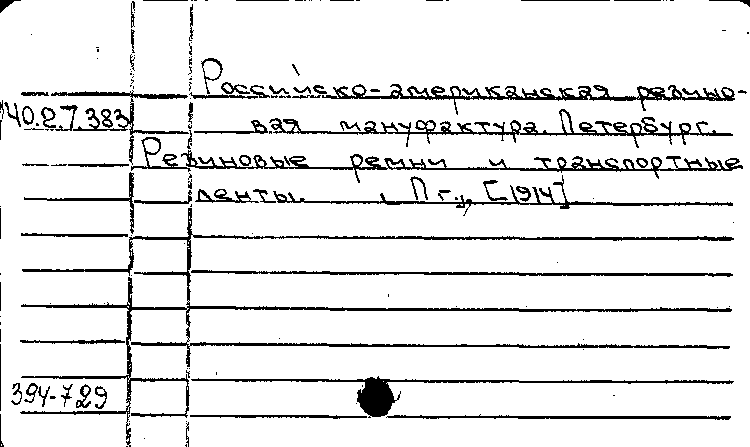 Российско-американская резино-
40.2.7.383 вая мануфактура. Петербург.
Резиновые ремни и транспортные
ленты. Пг., [1914]
394-729